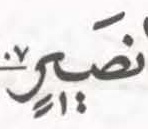 نَصِيرٍ ٠٧